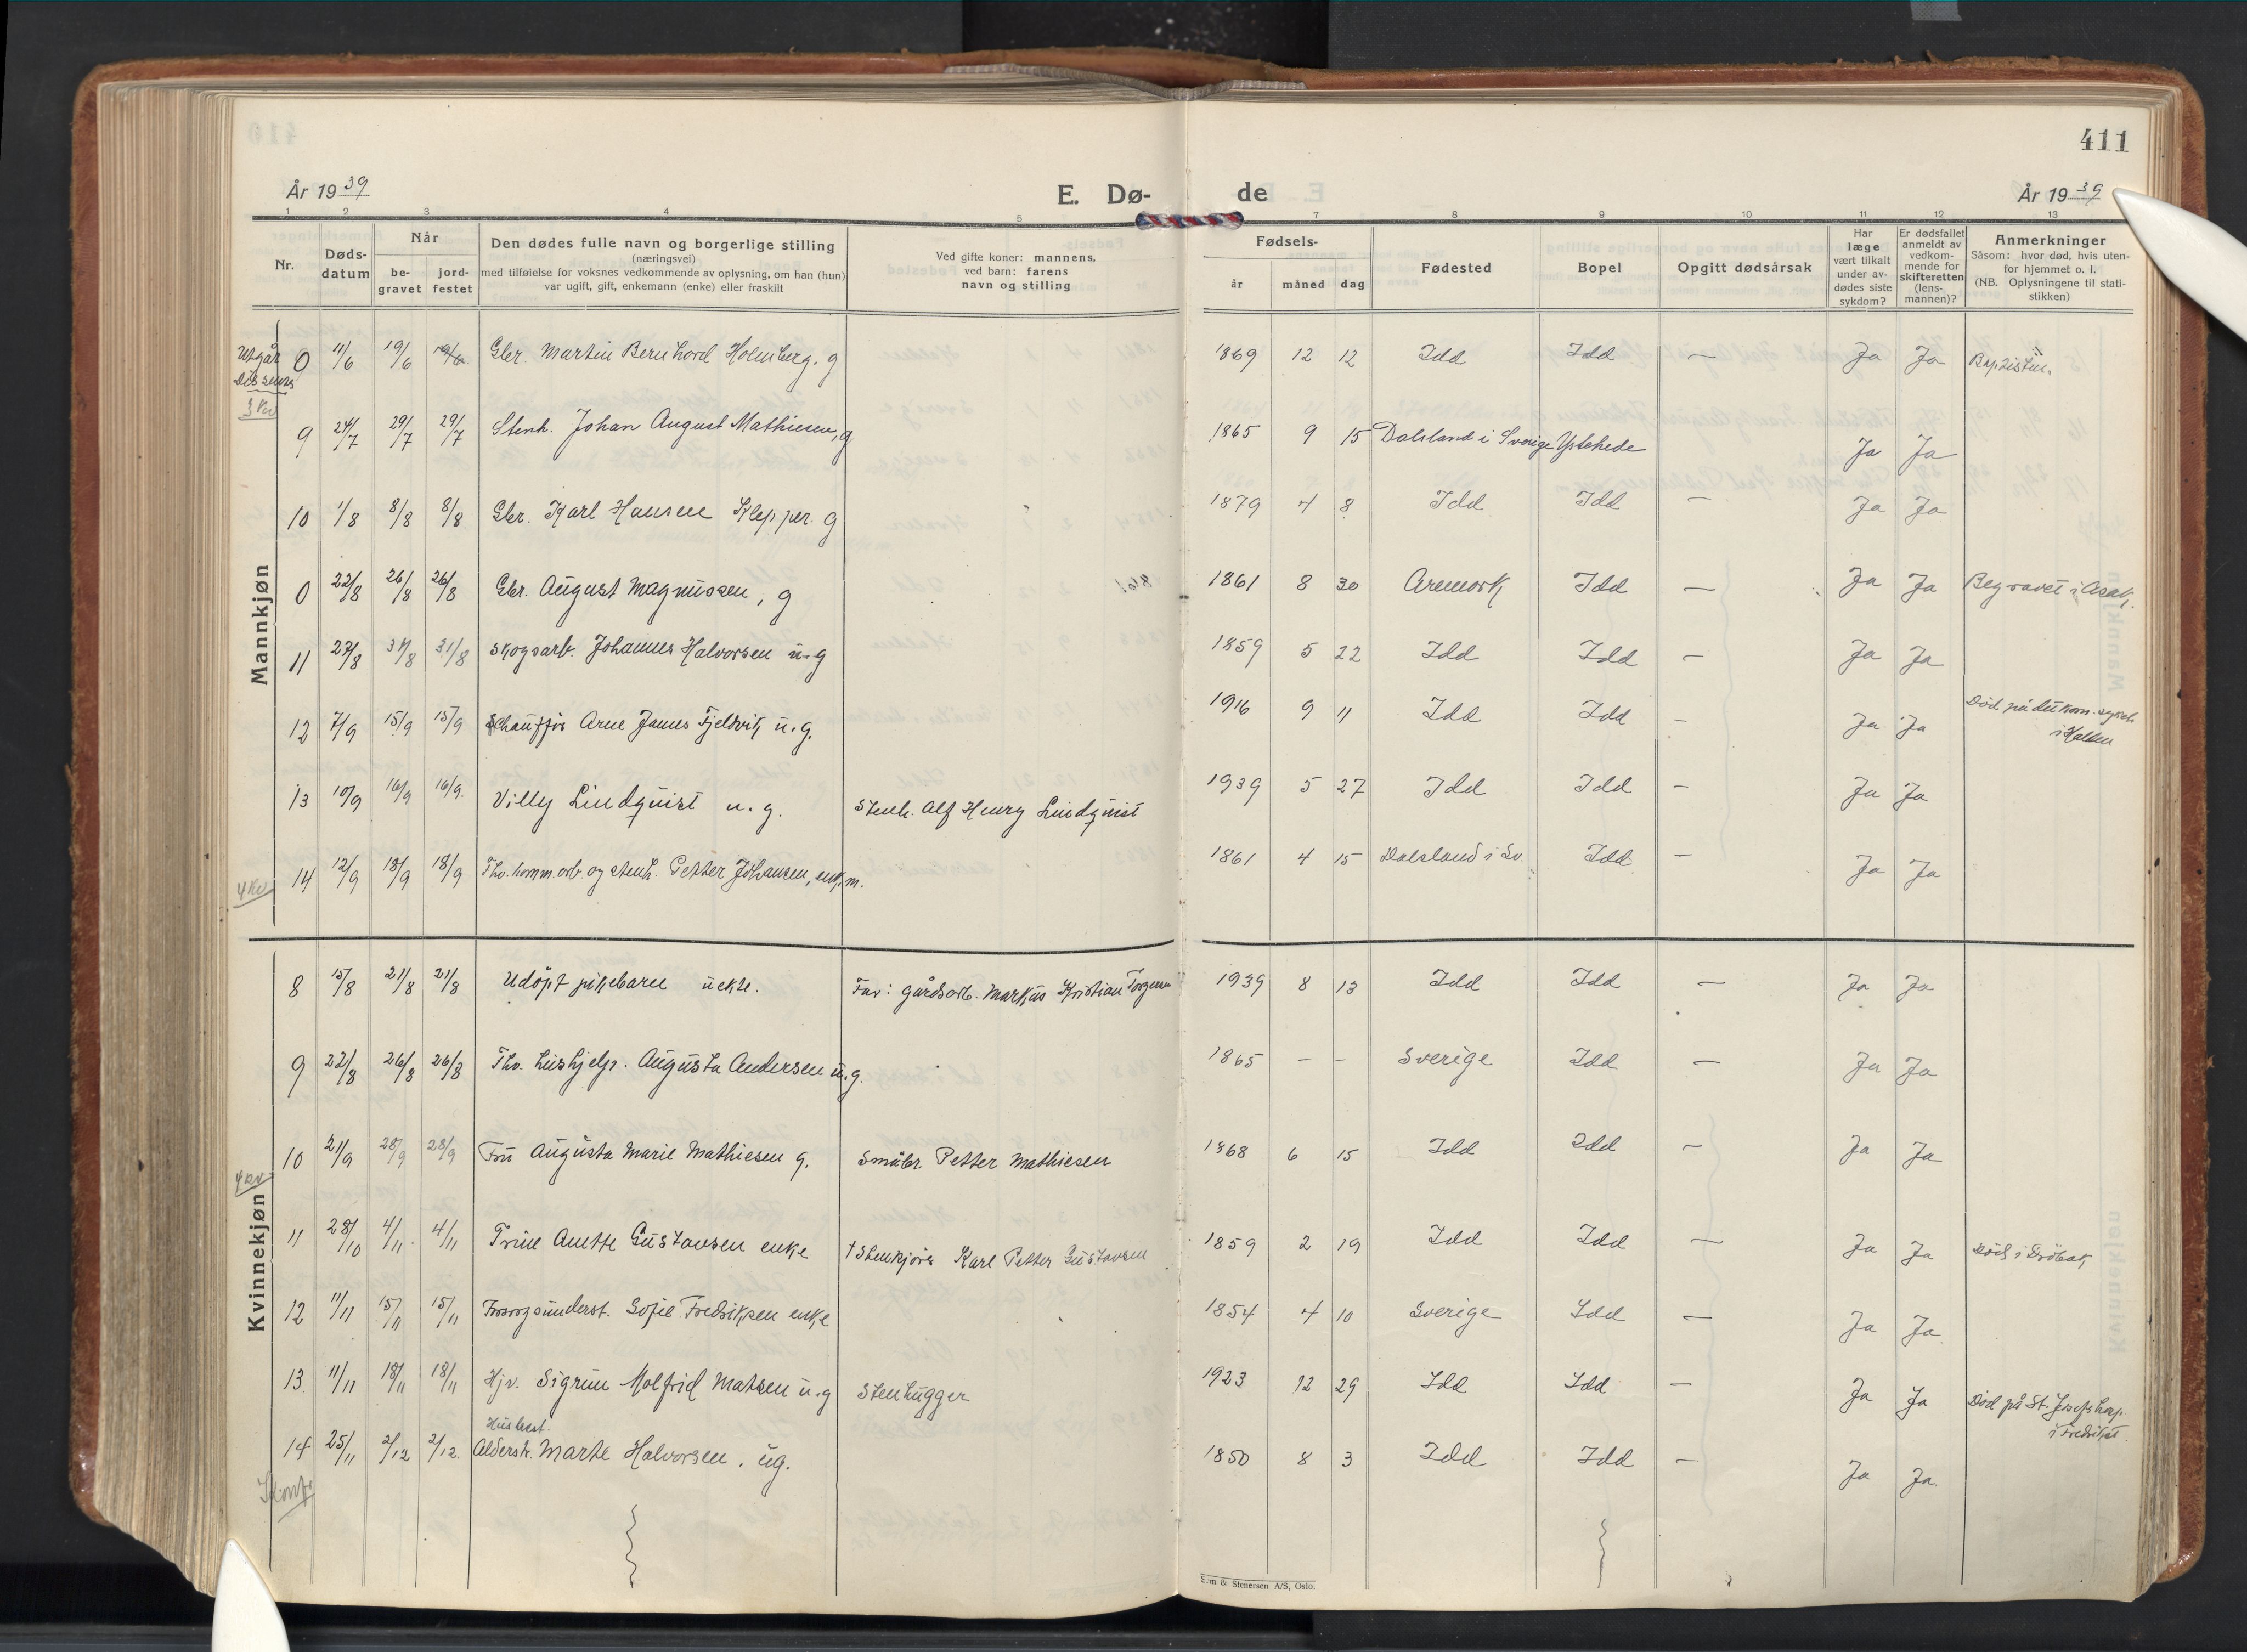 411
År 19 39
E. Dø-
de
År 19 39
1 2 3 4 5 7 8 9 10 11 12 13
Nr.
Døds-
datum
Når
be-
gravet
jord-
festet
Den dødes fulle navn og borgerlige stilling
(næringsvei)
med tilføielse for voksnes vedkommende av oplysning, om han (hun)
var ugift, gift, enkemann (enke) eller fraskilt
Ved gifte koner: mannens,
ved barn: farens
navn og stilling
Fødsels-
år måned dag
Fødested
Bopel
Opgitt dødsårsak
Har
læge
vært tilkalt
under av-
dødes siste
sykdom?
Er dødsfallet
anmeldt av
vedkom-
mende for
skifteretten
(lens-
mannen)?
Anmerkninger
Såsom: hvor død, hvis uten-
for hjemmet o. l.
(NB. Oplysningene til stati-
stikken)
Mannkjøn
Utgår
3 Kv
0 11/6 19/6 19/6 Gbr. Martin Bernhard Holmberg. g 1869 12 12 Idd Idd — Ja Ja Baptist
9 24/7 29/7 29/7 Stenh. Johan August Mathiesen, g 1865 9 15 Dalsland i Sverige Ystehede Ja Ja
10 1/8 8/8 8/8 Gbr. Karl Hansen Klepper. g 1879 4 8 Idd Idd — Ja Ja
0 22/8 26/8 26/8 Gbr. August Magnussen, g 1861 8 30 Aremark Idd — Ja Ja Begravet i Asak.
11 27/8 31/8 31/8 Skogsarb. Johannes Halvorsen u.g 1859 5 22 Idd Idd — Ja Ja
12 7/9 15/9 15/9 Schauffør Arne James Fjeldvik u.g. 1916 9 11 Idd Idd — Ja Ja Død på det kom. sykeh
i Halden
13 10/9 16/9 16/9. Villy Lindquist u.g. Stenh. Alf Henry Lindquist 1939 5 27 Idd Idd — Ja Ja
4 Kv
14 12/9 18/9 18/9 Fhv. komm.arb. og stenh. Petter Johansen, enk.m. 1861 4 15 Dalsland i Sv. Idd — Ja Ja
Kvinnekjøn
8 15/8 21/8 21/8 Udøpt pikebarn uekte. Far: gårdsarb. Markus Kristian 1939 8 13 Idd Idd — Ja Ja
9 22/8 26/8 26/8 Fhv. hushjelp. Augusta Andersen u.g. 1865 — — Sverige Idd — Ja Ja
4 Kv
10 21/9 28/9 28/9 Fru Augusta Marie Mathiesen g. Småbr. Petter Mathiesen 1868 6 15 Idd Idd — Ja Ja
11 28/10 4/11 4/11 Trine Anette Gustavsen enke † Stenkjører Karl Petter Gustavsen 1859 2 19 Idd Idd — Ja Ja Død i Drøbak
12 11/11 15/11 15/11 Forsorgsunderst. Sofie Fredriksen enke 1854 4 10 Sverige Idd — Ja Ja
13. 11/11 18/11 18/11 Hjv. Sigrun Molfrid Matsen u.g Stenhugger 1923 12 29 Idd Idd — Ja Ja Død på St. Josefs hosp.
i Fredrikst.
Husbest.
14 25/11 2/12 2/12. Alderstr. Marte Halvorsen, ug. 1850 8 3 Idd Idd — Ja Ja.
& Stenersen A/S, Oslo.